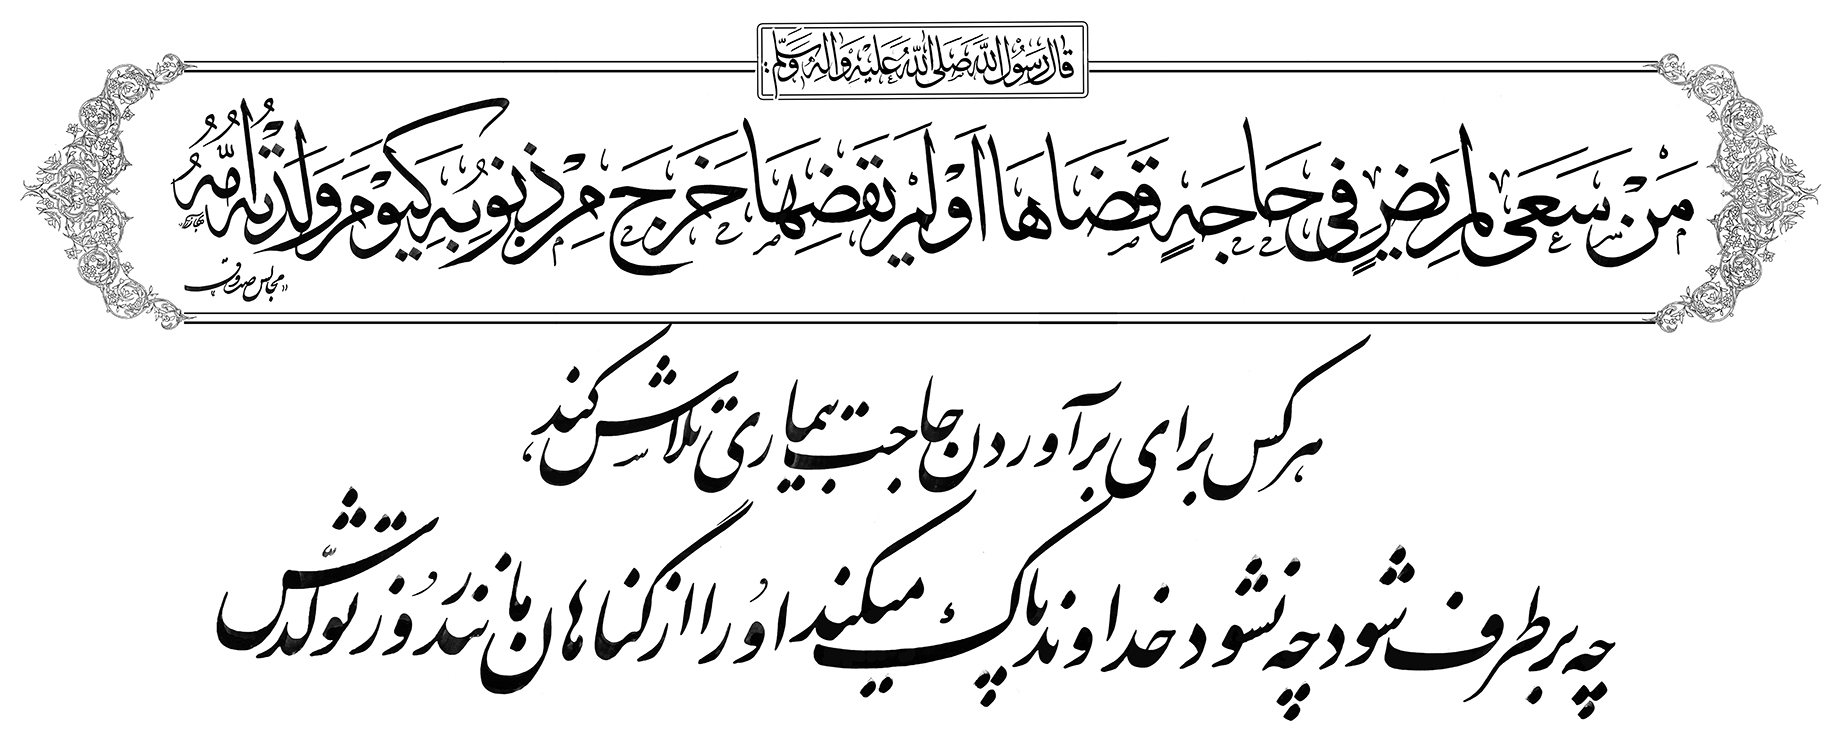 قَالَ رَسُولُ اللَّهِ صَلَّى اللَّهُ عَلَيْهِ وَآلِهِ وَسَلَّمَ:
مَنْ سَعَى لِمَرِيضٍ فِي حَاجَةٍ قَضَاهَا أَوْ لَمْ يَقْضِهَا خَرَجَ مِنْ ذُنُوبِهِ كَيَوْمَ وَلَدَتْهُ أُمُّهُ
«مجالس صدوق»
هرکس برای برآوردن حاجت بیماری تلاش کند،
چه برطرف شود چه نشود خداوند پاک میکند او را از گناهان مانند روز تولّدش